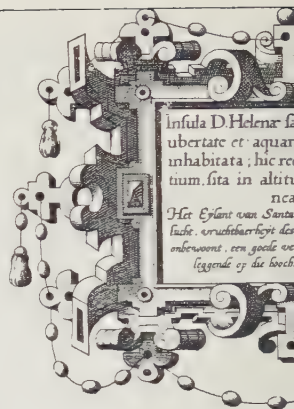 Insula D. Helenæ sa
ubertate et aquar
inhabitata; hic rec
tium, sita in altitu
nea
Het Eylant van Santa
lucht, vruchtbaerheyt des
onbewoont, een goede ve
leggende op die hooch